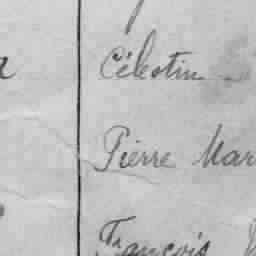 Célestin
Pierre Mar
François